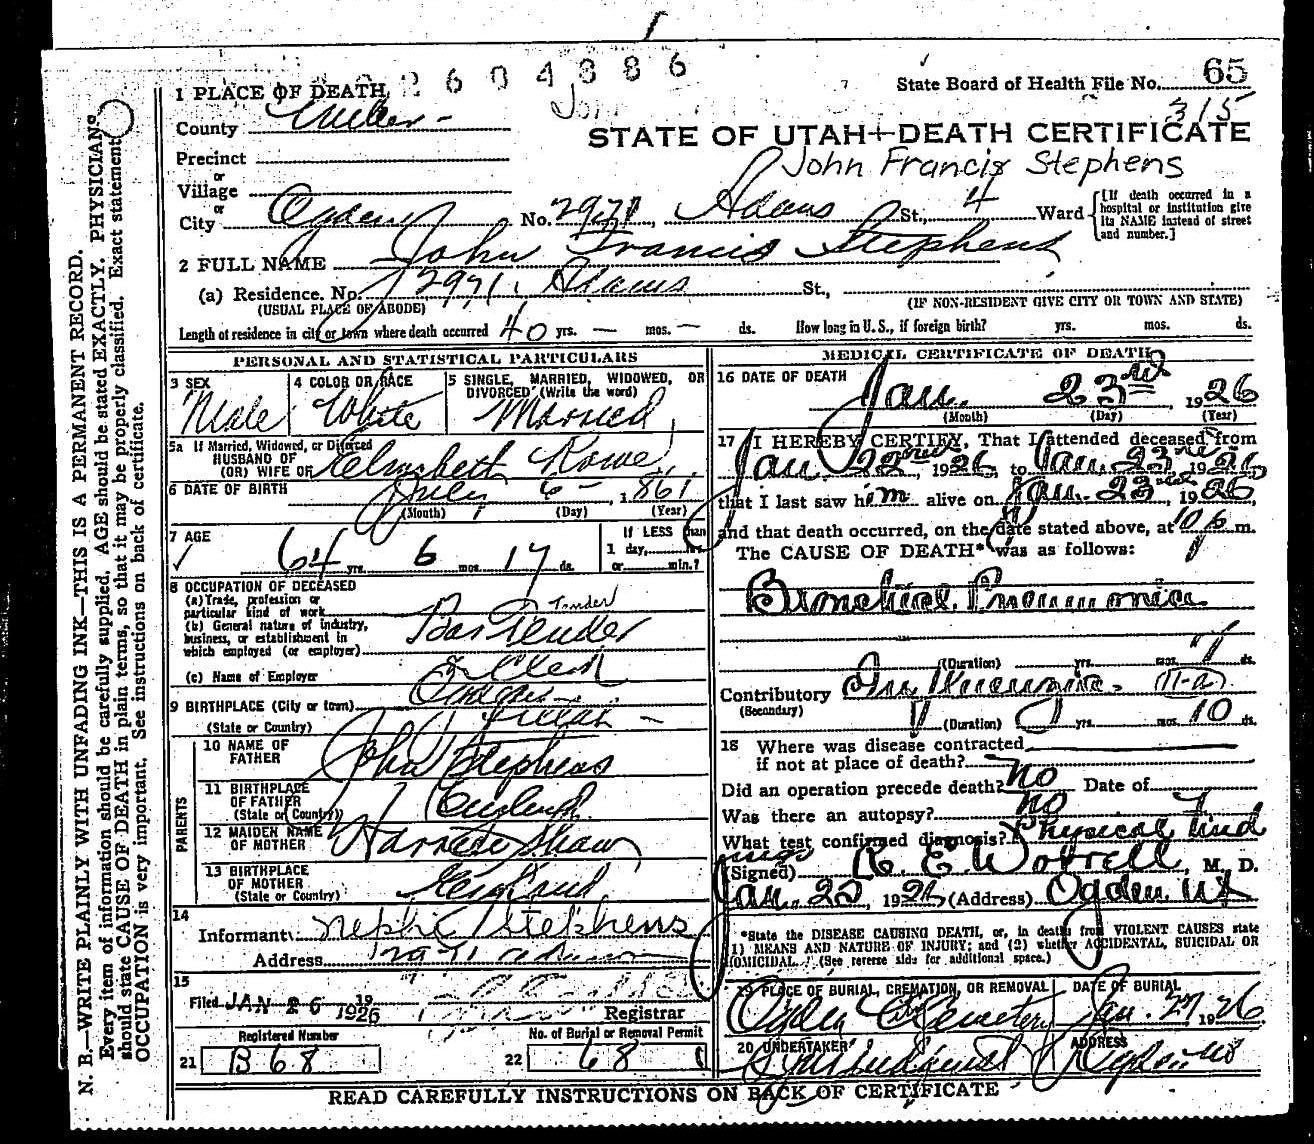 2604886
State Board of Health File No. 65
315
1 PLACE OF DEATH
County Weber
STATE OF UTAH—DEATH CERTIFICATE
John Francis Stephens
Precinct
or
Village
or
City Ogden No. 2971 Adams St., 4 Ward
[If death occurred in a hospital or institution give its NAME instead of street and number.]
2 FULL NAME John Francis Stephens
(a) Residence. No. 2971 Adams St.,
(USUAL PLACE OF ABODE) (IF NON-RESIDENT GIVE CITY OR TOWN AND STATE)
Length of residence in city or town where death occurred 40 yrs. — mos. — ds. How long in U.S., if foreign birth? yrs. mos. ds.
PERSONAL AND STATISTICAL PARTICULARS
3 SEX
Male
4 COLOR OR RACE
White
5 SINGLE, MARRIED, WIDOWED, OR DIVORCED (Write the word)
Married
5a If Married, Widowed, or Divorced
HUSBAND OF
(OR) WIFE OR Elizabeth Rowe
6 DATE OF BIRTH July 6 – , 1861
(Month) (Day) (Year)
7 AGE
64 yrs. 6 mos. 17 ds.
If LESS than
1 day, hrs.
or min.?
8 OCCUPATION OF DECEASED
(a) Trade, profession or
particular kind of work
(b) General nature of industry,
business, or establishment in
which employed (or employer)
Tender
Bar Tender
(c) Name of Employer
& Clerk
9 BIRTHPLACE (City or town) Ogden
(State or Country) Utah —
PARENTS
10 NAME OF FATHER John Stephens
11 BIRTHPLACE OF FATHER (State or Country) England
12 MAIDEN NAME OF MOTHER Harriet Shaw
13 BIRTHPLACE OF MOTHER (State or Country) England
14
Informant Nephi Stephens
Address 2971 Adams
15
Filed JAN 26 1926 19
Registrar
Registered Number
21 B 68
No. of Burial or Removal Permit
22 68
MEDICAL CERTIFICATE OF DEATH
16 DATE OF DEATH
Jan. 23rd, 1926
(Month) (Day) (Year)
17 I HEREBY CERTIFY, That I attended deceased from
Jan 22nd, 1926 to Jan. 23rd 1926
that I last saw him alive on Jan. 23rd, 1926,
and that death occurred, on the date stated above, at 10 p. m.
The CAUSE OF DEATH* was as follows:
Bronchial Pneumonia
(Duration) yrs. mos. ds.
Contributory Influenza. 11-a
(Secondary)
(Duration) yrs. mos. 10 ds.
18 Where was disease contracted
if not at place of death?
Did an operation precede death? no Date of
Was there an autopsy? no
What test confirmed diagnosis? Physical find
ings
(Signed) R. E. Worrell, M. D.
Jan. 25, 1926 (Address) Ogden Ut
*State the DISEASE CAUSING DEATH, or, in deaths from VIOLENT CAUSES state
1) MEANS AND NATURE OF INJURY; and (2) whether ACCIDENTAL, SUICIDAL OR
HOMICIDAL. (See reverse side for additional space.)
19 PLACE OF BURIAL, CREMATION, OR REMOVAL
Ogden City Cemetery
DATE OF BURIAL
Jan. 27, 1926
20 UNDERTAKER
ADDRESS
Ogden
READ CAREFULLY INSTRUCTIONS ON BACK OF CERTIFICATE
N. B.—WRITE PLAINLY WITH UNFADING INK—THIS IS A PERMANENT RECORD.
Every item of information should be carefully supplied. AGE should be stated EXACTLY. PHYSICIANS
should state CAUSE OF DEATH in plain terms, so that it may be properly classified. Exact statement
OCCUPATION is very important. See instructions on back of certificate.